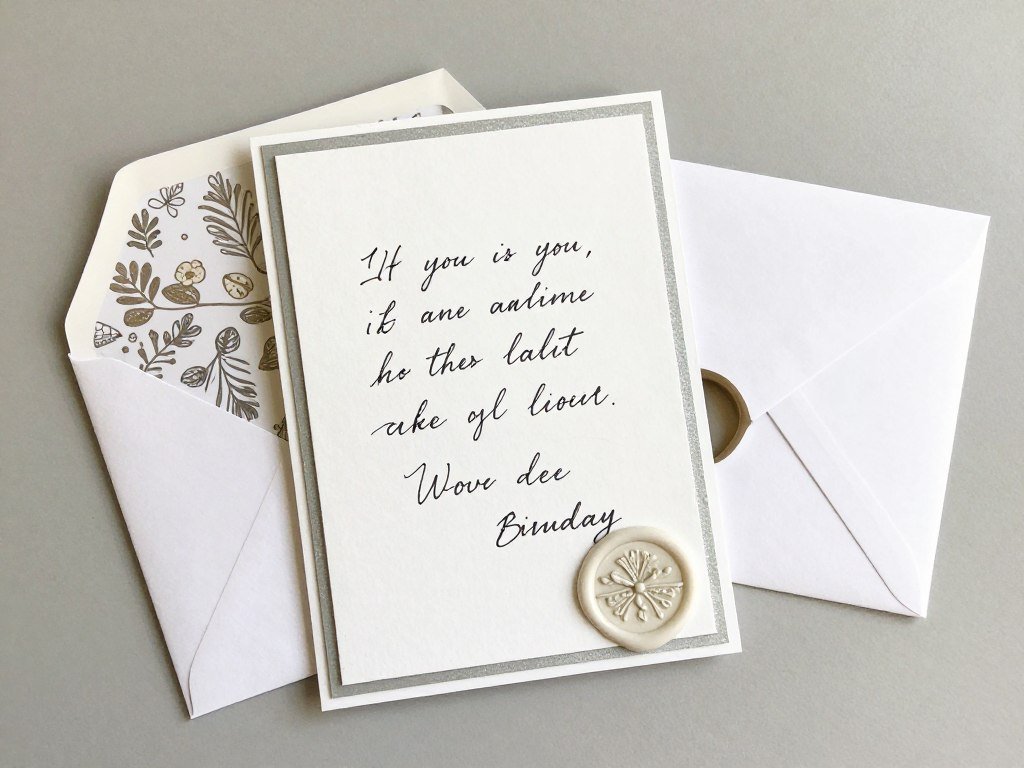 If you is you,
ib ane aalime
ho thes lalit
cike gl liout.
Wove dee
Bimday